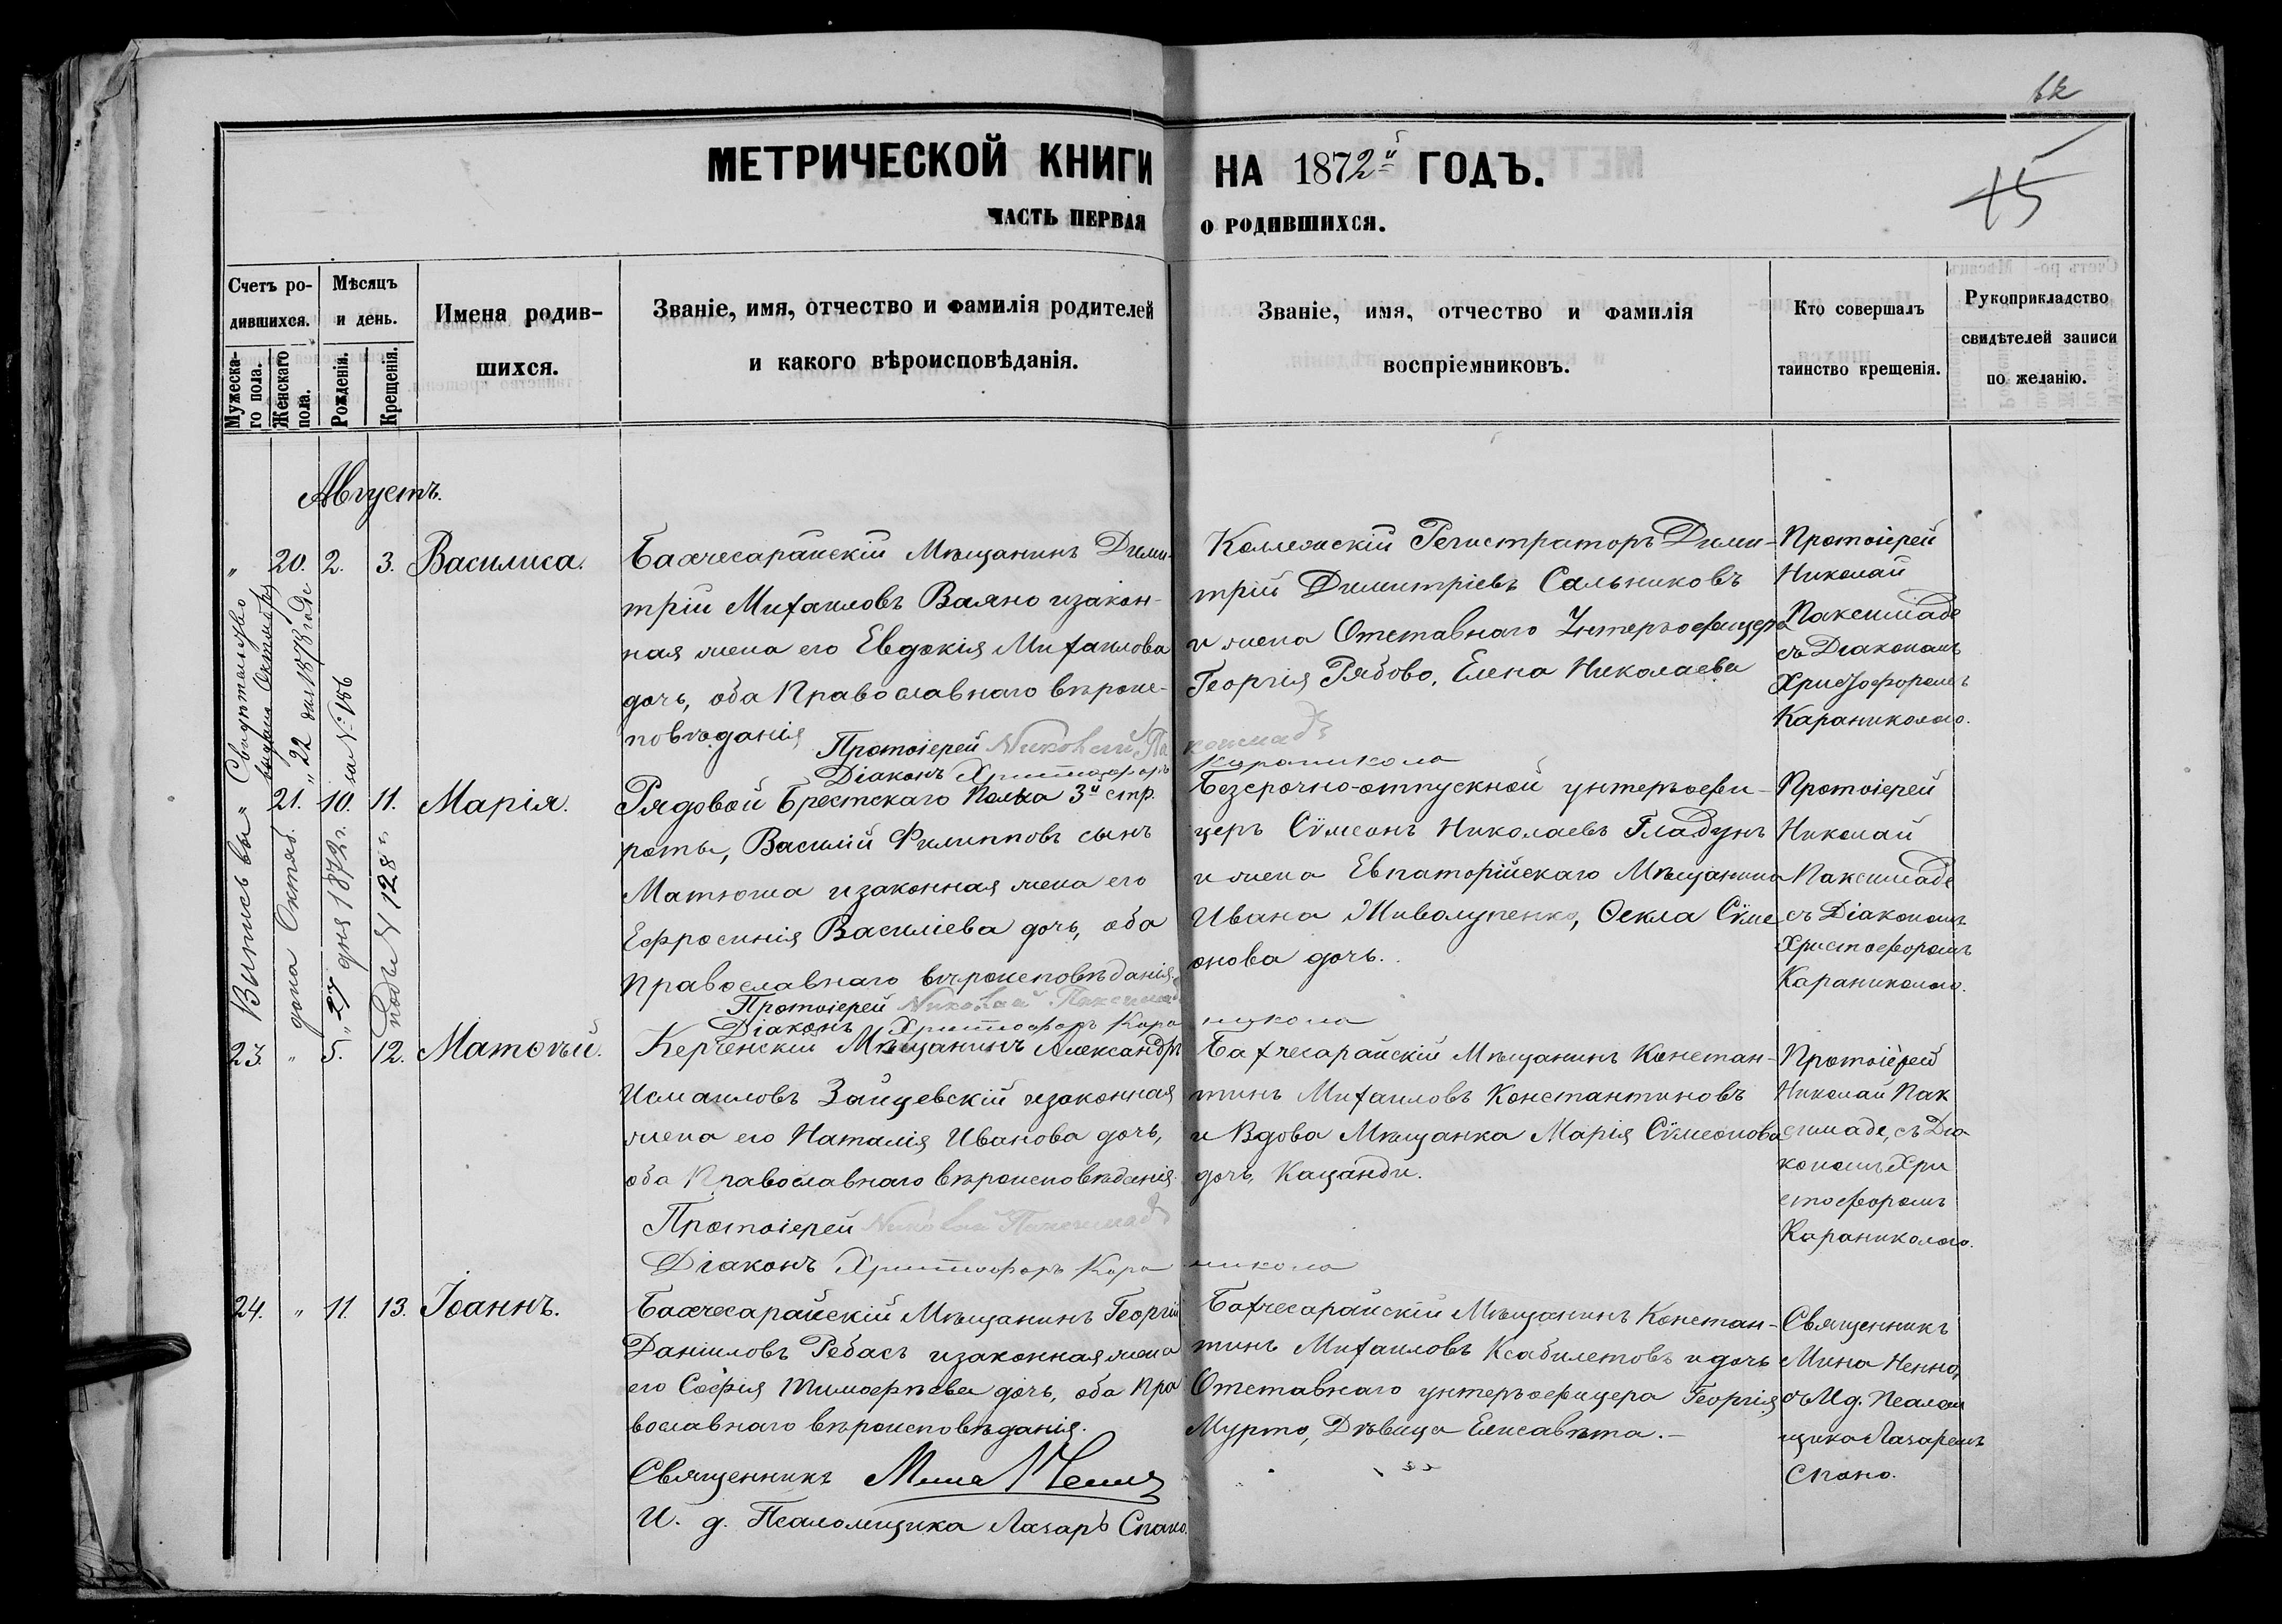 МЕТРИЧЕСКОЙ КНИГИ НА 1872й ГОДЪ.
15
ЧАСТЬ ПЕРВАЯ О РОДИВШИХСЯ.
Счетъ ро-
дившихся.
Мужеска-
го пола.
Женскаго
пола.
Мѣсяцъ
и день.
Рожденія.
Крещенія.
Имена родив-
шихся.
Званіе, имя, отчество и фамилія родителей
и какого вѣроисповѣданія.
Званіе, имя, отчество и фамилія
воспріемниковъ.
Кто совершалъ
таинство крещенія.
Рукоприкладство
свидѣтелей записи
по желанію.
Августъ.
" 20. 2. 3. Василиса.
Бахчесарайскій Мѣщанинъ Дими-
трій Михаиловъ Ваяно изакон-
ная жена его Евдокія Михаилова
дочь, оба Православнаго вѣроис-
повѣданія
Протоіерей Николай Паксимадъ
Діаконъ Христофоръ Караникола
Коллежскій Регистраторъ Дими-
трій Димитріевъ Сальниковъ
и жена Отставнаго Унтеръофицера
Георгія Рябово, Елена Николаева
Протоіерей
Николай
Паксимаде
съ Діакономъ
Христофоромъ
Караниколою.
" 21. 10. 11. Марія.
Рядовой Брестскаго Полка 3й стр.
роты, Василій Филипповъ сынъ
Матюша изаконная жена его
Ефросинія Василіева дочь, оба
Православнаго вѣроисповѣданія.
Протоіерей Николай Паксимадъ
Діаконъ Христофоръ Караникола
Безсрочно-отпускной унтеръофи-
церъ Сѵмеонъ Николаевъ Гладунъ
и жена Евпаторійскаго Мѣщанина
Ивана Живолупенко, Ѳекла Сѵме-
онова дочь.
Протоіерей
Николай
Паксимаде
съ Діакономъ
Христофоромъ
Караниколою.
23. " 5. 12. Матѳѣй.
Керченскій Мѣщанинъ Александръ
Исмаиловъ Зайцевскій изаконная
жена его Наталія Иванова дочь,
оба Православнаго вѣроисповѣданія.
Протоіерей Николай Паксимадъ
Діаконъ Христофоръ Караникола
Бахчесарайскій Мѣщанинъ Констан-
тинъ Михаиловъ Константиновъ
и Вдова Мѣщанка Марія Сѵмеонова
дочь, Кацанди.
Протоіерей
Николай Пак
симаде, съ Діа
кономъ Хри
стофоромъ
Караниколою.
24. " 11. 13. Іоаннъ.
Бахчесарайскій Мѣщанинъ Георгій
Даніиловъ Ребасъ изаконная жена
его Софія Тимофѣева дочь, оба Пра
вославнаго вѣроисповѣданія.
Священникъ Мина
И. д. Псаломщика Лазарь Спано.
Бахчесарайскій Мѣщанинъ Констан-
тинъ Михаиловъ Ксабилетовъ и дочь
Отставнаго унтеръофицера Георгія
Мурто, Дѣвица Елисавета.-
Священникъ
Мина Ненно,
съ И д. Псалом
щика Лазаремъ
Спано.
Выпись выдана Октяб. 27 дня 1872 г. подъ N 128
Свидѣтельство выдано Октября 22 дня 1878 года за N: 156